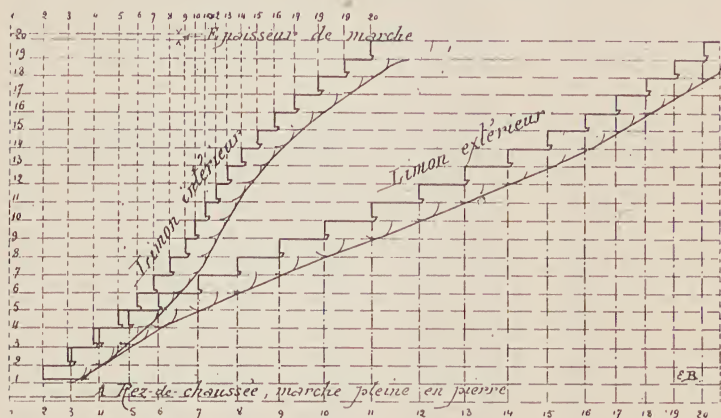 1 2 3 4 5 6 7 8 9 10 11 12 13 14 15 16 17 18 19 20
Epaisseur de marche
20
19
18
17
16
15
14
13
12
11
10
9
8
7
6
5
4
3
2
1
Limon intérieur
Limon extérieur
E.B.
Rez-de-chaussée, marche pleine en pierre
1 2 3 4 5 6 7 8 9 10 11 12 13 14 15 16 17 18 19 20